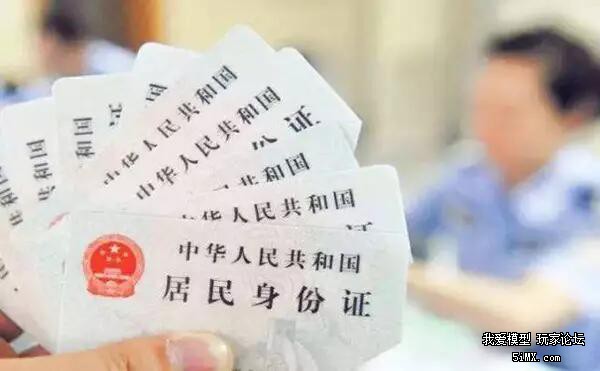 中华人民共和国
中华人民共和国
份证
共和国
中华人民共和国
中华人民共和国
居民身份证
我爱模型 玩家论坛
5iMX.com